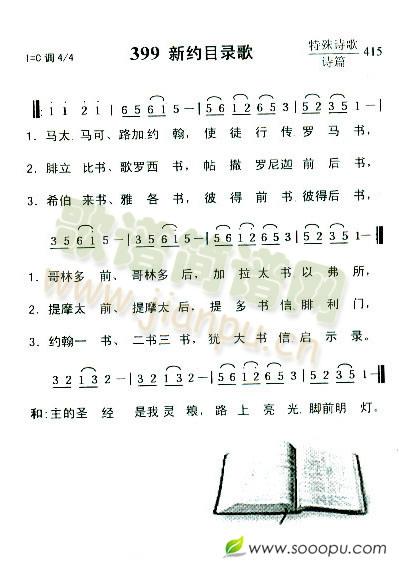 1=C 调 4/4
399 新约目录歌
特殊诗歌
诗篇
415
1 1 2 1 | 6 5 6 1 - | 5 6 1 2 6 5 | 5 2 3 5 1 - |
1. 马太. 马可、路加.约 翰, 使 徒 行 传 罗 马 书,
2. 腓立 比书、歌罗西 书, 帖 撒 罗尼迦 前 后 书,
3. 希伯 来书、雅 各 书, 彼 得 前 书 彼得后 书,
3 5 6 1 5 - | 3 2 1 2 3 - | 5 6 1 2 6 5 | 5 2 3 5 1 -
1. 哥林多 前、 哥林多 后, 加 拉 太 书 以 弗 所,
2. 提摩太 前、 提摩太 后, 提 多 书 信. 腓 利 门,
3. 约翰一 书、 二书三 书, 犹 大 书 信 启 示 录。
3 2 1 3 5 - | 3 2 1 2 3 - | 5 6 1 2 6 5 | 5 2 3 5 1 -
和: 主的 圣 经 是我 灵 粮, 路 上 亮 光, 脚前明 灯。
歌谱简谱网
www.jianpu.cn
www.sooopu.com